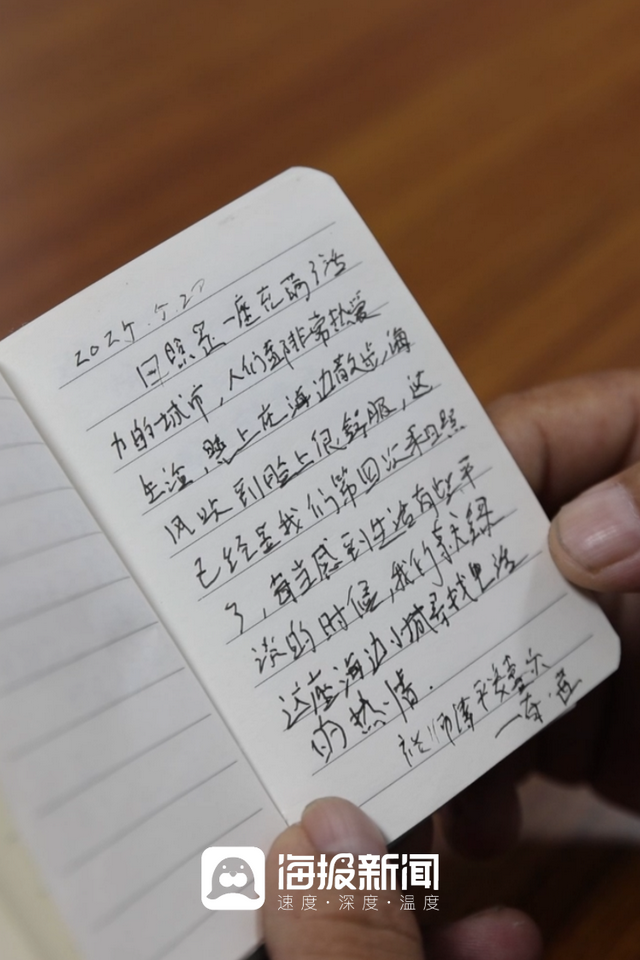 2025.5.27
日照是一座充满了活
力的城市，人们都非常热爱
生活，晚上在海边散步，海
风吹到脸上很舒服，这
已经是我们第四次来日照
了，每当感到生活有些平
淡的时候，我们就去
这座海边小城寻找生活
的热情.
祝师傅平安
一车
海报新闻
速度·深度·温度